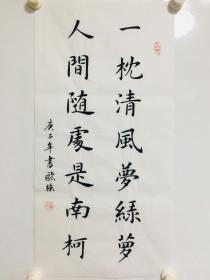 一枕清風夢綠蘿
人間随處是南柯
庚子年書歐強